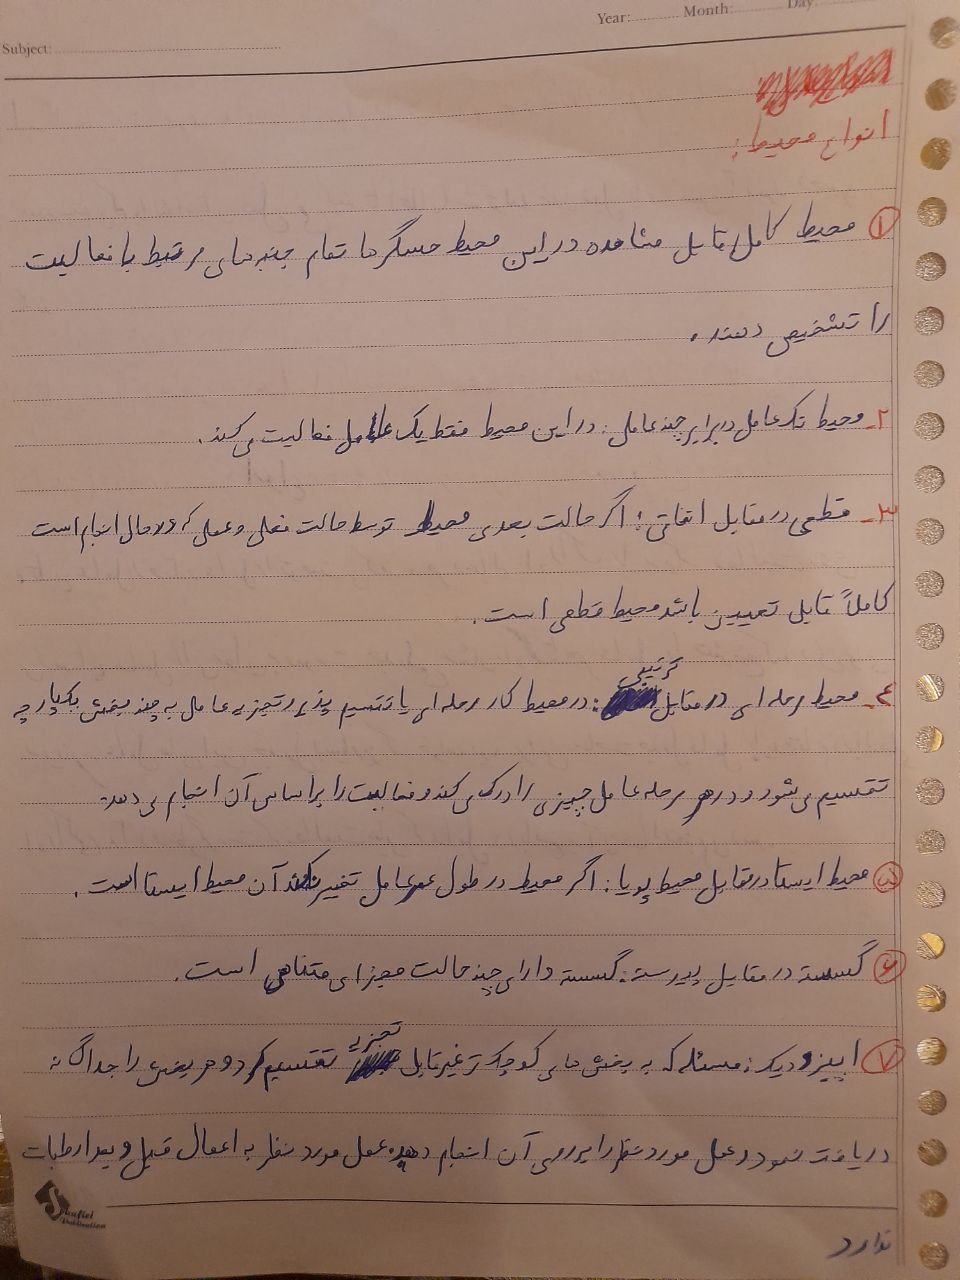 Year: Month: Day:
Subject:
انواع محیط:
۱ محیط کامل قابل مشاهده در این محیط حسگرها تمام جنبه های مرتبط با فعالیت
را تشخیص دهند.
۲_ محیط تک عامل در برابر چند عاملی: در این محیط فقط یک عامل فعالیت می کند.
۳_ قطعی در مقابل اتفاقی: اگر حالت بعدی محیط توسط حالت فعلی و عملی که در حال انجام است
کاملاً قابل تعیین باشد محیط قطعی است.
۴_ محیط مرحله ای در مقابل ترتیبی: در محیط کار مرحله ای یا تقسیم پذیر تجزیه عامل به چند بخش یکپارچه
تقسیم می شود و در هر مرحله عامل چیزی را درک می کند و فعالیت را بر اساس آن انجام می دهد.
۵ محیط ایستا در مقابل محیط پویا: اگر محیط در طول عمر عامل تغییر نکند آن محیط ایستا است.
۶ گسسته در مقابل پیوسته: گسسته دارای چند حالت مجزای متناهی است.
۷ اپیزودیک: مسئله که به بخش های کوچک تر غیر قابل تجزیه تقسیم کرد و هر بخش را جداگانه
دریافت نمود و عمل مورد نظر را بر روی آن انجام دهد. عمل مورد نظر به اعمال قبل و بعد ارطبات
ندارد
Shafiei Publication